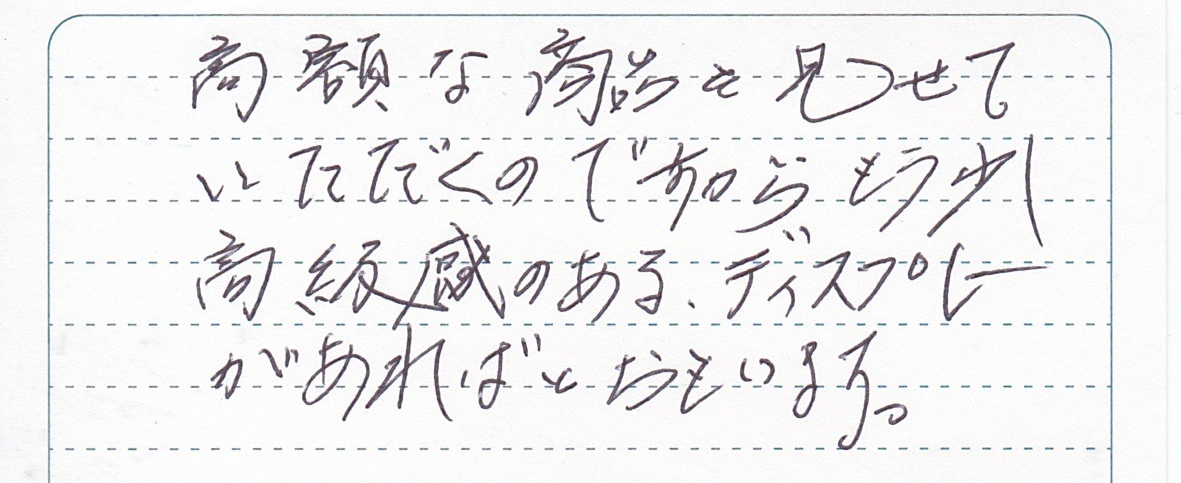 高額な商品を見つせて
いただくのですから もう少し
高級感のある、ディスプレー
があればと おもいます。